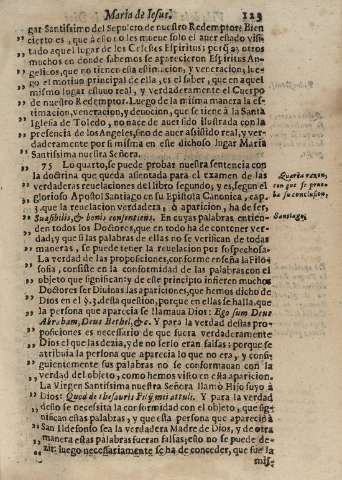 Maria de Iesus. 123
gar Santissimo del Sepulcro de nuestro Redemptor: Bien
cierto es, que à esto no les mueve solo el auer estado visi-
tado aquel lugar de los Celestes Espiritus; pero ay otros
muchos en donde sabemos se aparecieron Espiritus An-
gelicos, que no tienen essa estimacion, y veneracion, lue-
go el motiuo principal de ella, es saber, que en aquel
mismo lugar estuuo real, y verdaderamente el Cuerpo
de nuestro Redemptor. Luego de la misma manera la es-
timacion, veneracion, y deuocion, que se tiene à la Santa
Iglesia de Toledo, no nace de auer sido ilustrada con la
presencia de los Angeles, sino de auer asistido real, y ver-
daderamente por si mismo en este dichoso lugar Maria
Santissima nuestra Señora.
75 Lo quarto, se puede probar nuestra sentencia con
la doctrina que queda asentada para el examen de las
verdaderas reuelaciones del libro segundo, y es, segun el
glorioso Apostol Santiago en su Epistola Canonica, cap.
3. que la reuelacion verdadera, ò aparicion, ha de ser,
Suasibilis, & bonis consentiens. En cuyas palabras entien-
den todos los Doctores, que en todo ha de contener ver-
dad; y que si las palabras de ella no se verifican de todas
maneras, se puede tener la reuelacion por sospechosa.
La verdad de las proposiciones, conforme enseña la Filo-
sofia, consiste en la conformidad de las palabras con el
objeto que significan: y de este principio infieren muchos
Doctores ser Diuinas las apariciones, que hemos dicho de
Dios en el §. 3. desta question, porque en ellas se halla, que
la persona que aparecia se llamaua Dios: Ego sum Deus
Abraham, Deus Bethel, &c. Y para la verdad destas pro-
posiciones es necessario de que fuera verdaderamente
Dios el que las dezia, y de no serlo eran falsas: porque se
atribuia la persona que aparecia lo que no era, y consi-
guientemente sus palabras no se conformauan con la
verdad del objeto, como hemos visto en esta aparicion.
La Virgen Santissima nuestra Señora llamò Hijo suyo à
Dios: Quod de thesauris Filij mei attuli. Y para la verdad
desto se necessita la conformidad con el objeto, que sig-
nifican estas palabras, y que esta persona que apareciò à
San Ildefonso sea la verdadera Madre de Dios, y de otra
manera estas palabras fueran falsas; esto no se puede de-
zir: luego necessariamente se ha de conceder, que fue la
mis-
Quarta razon,
con que se prue-
ba su conclusion.
Santiago.